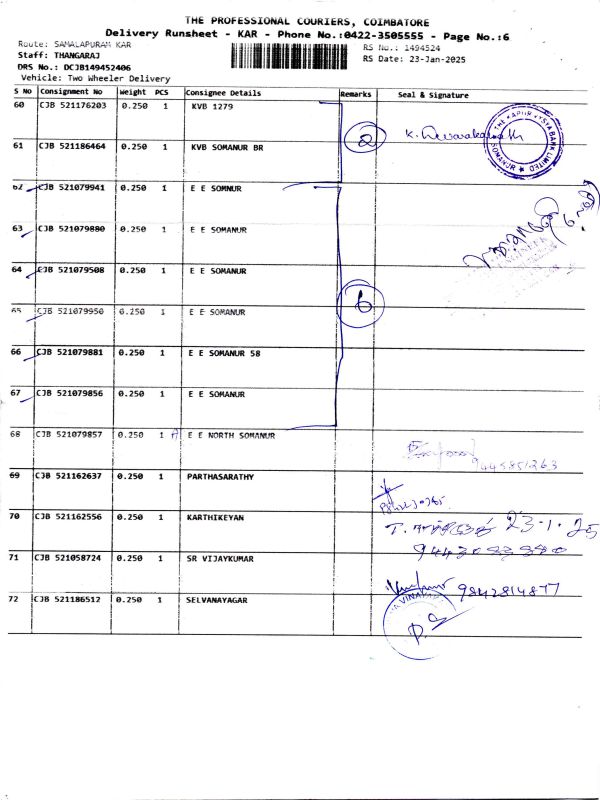 THE PROFESSIONAL COURIERS, COIMBATORE
Delivery Runsheet - KAR - Phone No.:0422-3505555 - Page No.:6
Route: SAMALAPURAM KAR
RS No.: 1494524
Staff: THANGARAJ
RS Date: 23-Jan-2025
DRS No.: DCJB149452406
Vehicle: Two Wheeler Delivery
S No Consignment No Weight PCS Consignee Details Remarks Seal & Signature
60 CJB 521176203 0.250 1 KVB 1279
2
THE KARUR VYSYA BANK LIMITED SOMANUR
61 CJB 521186464 0.250 1 KVB SOMANUR BR
62 CJB 521079941 0.250 1 E E SOMNUR
63 CJB 521079880 0.250 1 E E SOMANUR
64 CJB 521079508 0.250 1 E E SOMANUR
6
65 CJB 521079950 0.250 1 E E SOMANUR
66 CJB 521079881 0.250 1 E E SOMANUR 58
67 CJB 521079856 0.250 1 E E SOMANUR
68 CJB 521079857 0.250 1 E E NORTH SOMANUR
69 CJB 521162637 0.250 1 PARTHASARATHY
70 CJB 521162556 0.250 1 KARTHIKEYAN
23-1-25
71 CJB 521058724 0.250 1 SR VIJAYKUMAR
9842814877
72 CJB 521186512 0.250 1 SELVANAYAGAR